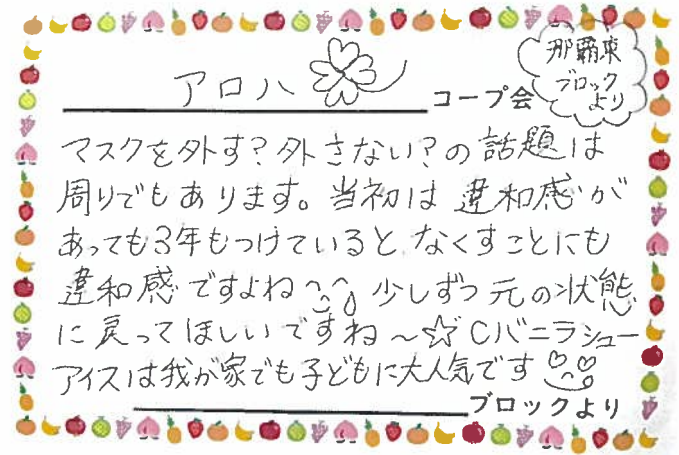 那覇東
ブロック
より
アロハ コープ会
マスクを外す?外さない?の話題は
周りでもあります。当初は違和感が
あっても3年もつけていると、なくすことにも
違和感ですよね 少しずつ元の状態
に戻ってほしいですね〜☆Cバニラシュー
アイスは我が家でも子どもに大人気です
ブロックより